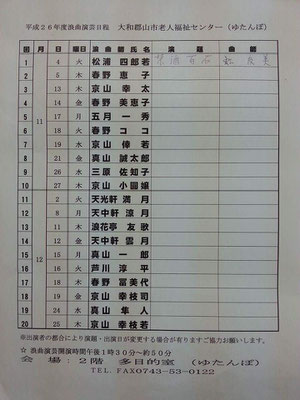 平成26年度浪曲演芸日程 大和郡山市老人福祉センター（ゆたんぽ）
回 月 日 曜日 浪曲師氏名 演題 演題
1 4 火 松浦 四郎若
2 5 水 春野 恵子
3 6 木 京山 幸太
4 7 金 春野 美恵子
5 11 11 火 五月 一秀
6 火 春野 ココ
7 京山 倖若
8 21 金 真山 誠太郎
9 26 水 三原 佐知子
10 27 木 京山 小圓嬢
11 2 火 天光軒 満月
12 8 月 天中軒 涼月
13 11 木 浪花亭 友歌
14 12 金 天中軒 雲月
15 12 15 月 真山 一郎
16 16 火 芦川 淳平
17 17 水 春野 冨美代
18 19 金 京山 幸枝司
19 24 水 真山 隼人
20 25 木 京山 幸枝若
※出演者の都合により演題・出演日が変更する場合が有りますご協力お願いします。
☆ 浪曲演芸開演時間午後1時30分～約50分
会場：2階 多目的室 （ゆたんぽ）
TEL．FAX0743-53-0122